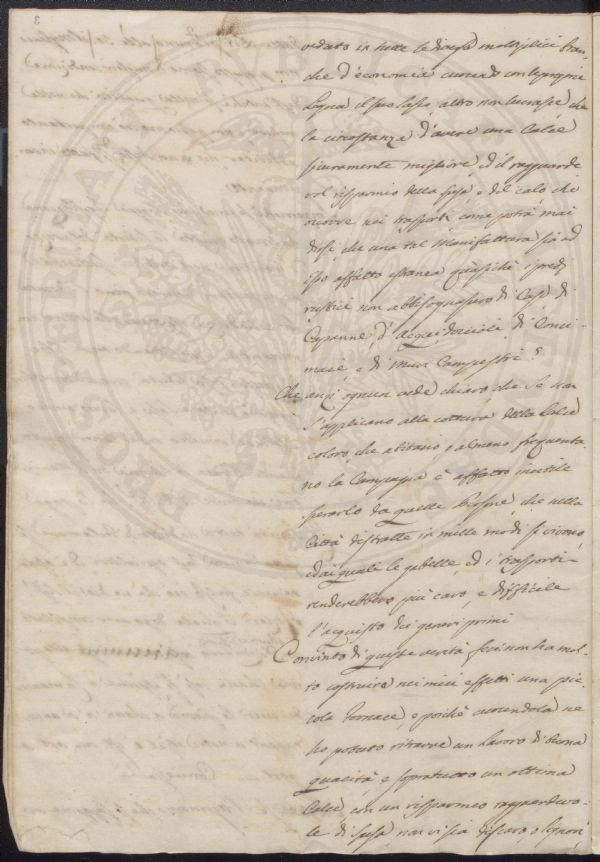 3
veduto in tutte le diverse moltiplici bran-
che d'economia cuocendo con le proprie
Legna il suo sasso, altro non lucrasse che
la circostanza d'avere una Calce
sicuramente migliore, ed il ragguarde
vol risparmio della spesa, e del calo che
occorre nei trasporti come potrà mai
dirsi, che una tal Manifattura sia ad
esso affatto estranea quasichè i predj
rustici non abbisognassero di Case di
Capanne, d'acquidoccioli, di Conci-
maie, e di Muri Campestri?
Che anzi ognun vede chiaro, che se non
s'applicano alla cottura della Calce
coloro, che abitano, o almeno frequenta-
no la Campagna è affatto inutile
sperarlo da quelle Persone, che nella
Città distratte in mille modi si vivono,
ed ai quali le gabelle, ed i trasporti
renderebbero più caro, e difficile
l'acquisto dei generi primi
Convinto di queste verità feci non ha mol-
to costruire nei miei effetti una pic-
cola Fornace, e poichè cuocendola ne
ho potuto ritrarre un lavoro di buona
qualità, e sopratutto un ottima
Calce, con un risparmio ragguardevo-
le di spesa, non vi sia discaro o Signori
PROVINCIA
PUB